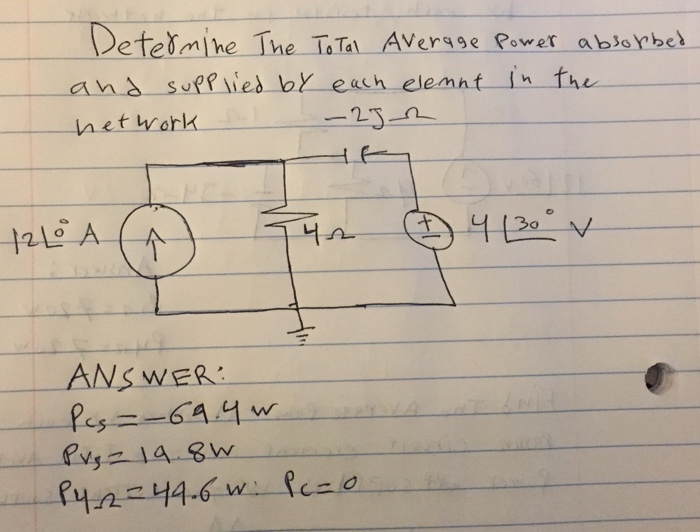 Determine The Total Average Power absorbed
and supplied by each elemnt in the
network
-2j Ω
12∠0° A
4Ω
+
-
4∠30° V
ANSWER:
Pcs = -69.4 w
Pvs = 19.8w
P4Ω = 49.6 w: Pc = 0